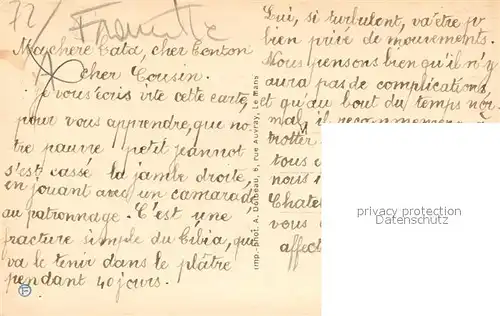 72/
Ma chère Tata, cher Tonton
cher Cousin.
Je vous écris vite cette carte,
pour vous apprendre, que no-
tre pauvre petit jeannot
s'est cassé la jambe droite,
en jouant avec un camarade
au patronnage. C'est une
fracture simple du tibia, qui
va le tenir dans le plâtre
pendant 40 jours.
imp.-phot. A. Dolbeau, 6, rue Auvray, Le Mans
Lui, si turbulent, va être
bien privé de mouvements.
Nous pensons bien qu'il n'y
aura pas de complications,
et qu'au bout du temps nor-
mal, il recommencera à
trotter
tous
nous
Chatel
vous
affect
privacy protection